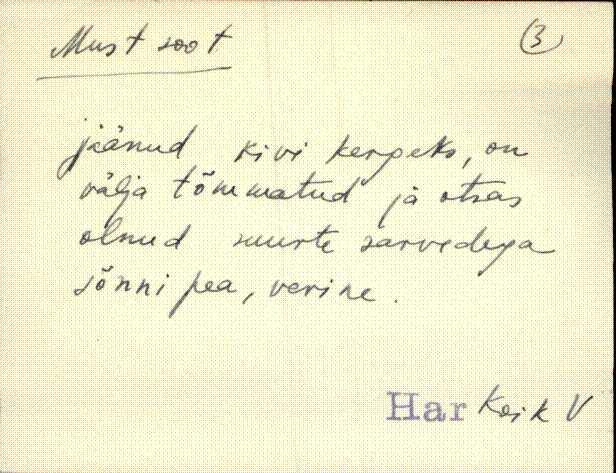 Must soot
3
jäänud kivi kergeks, on
välja tõmmatud ja otsas
olnud suurte sarvedega
sõnni pea, verine.
Har Koik V